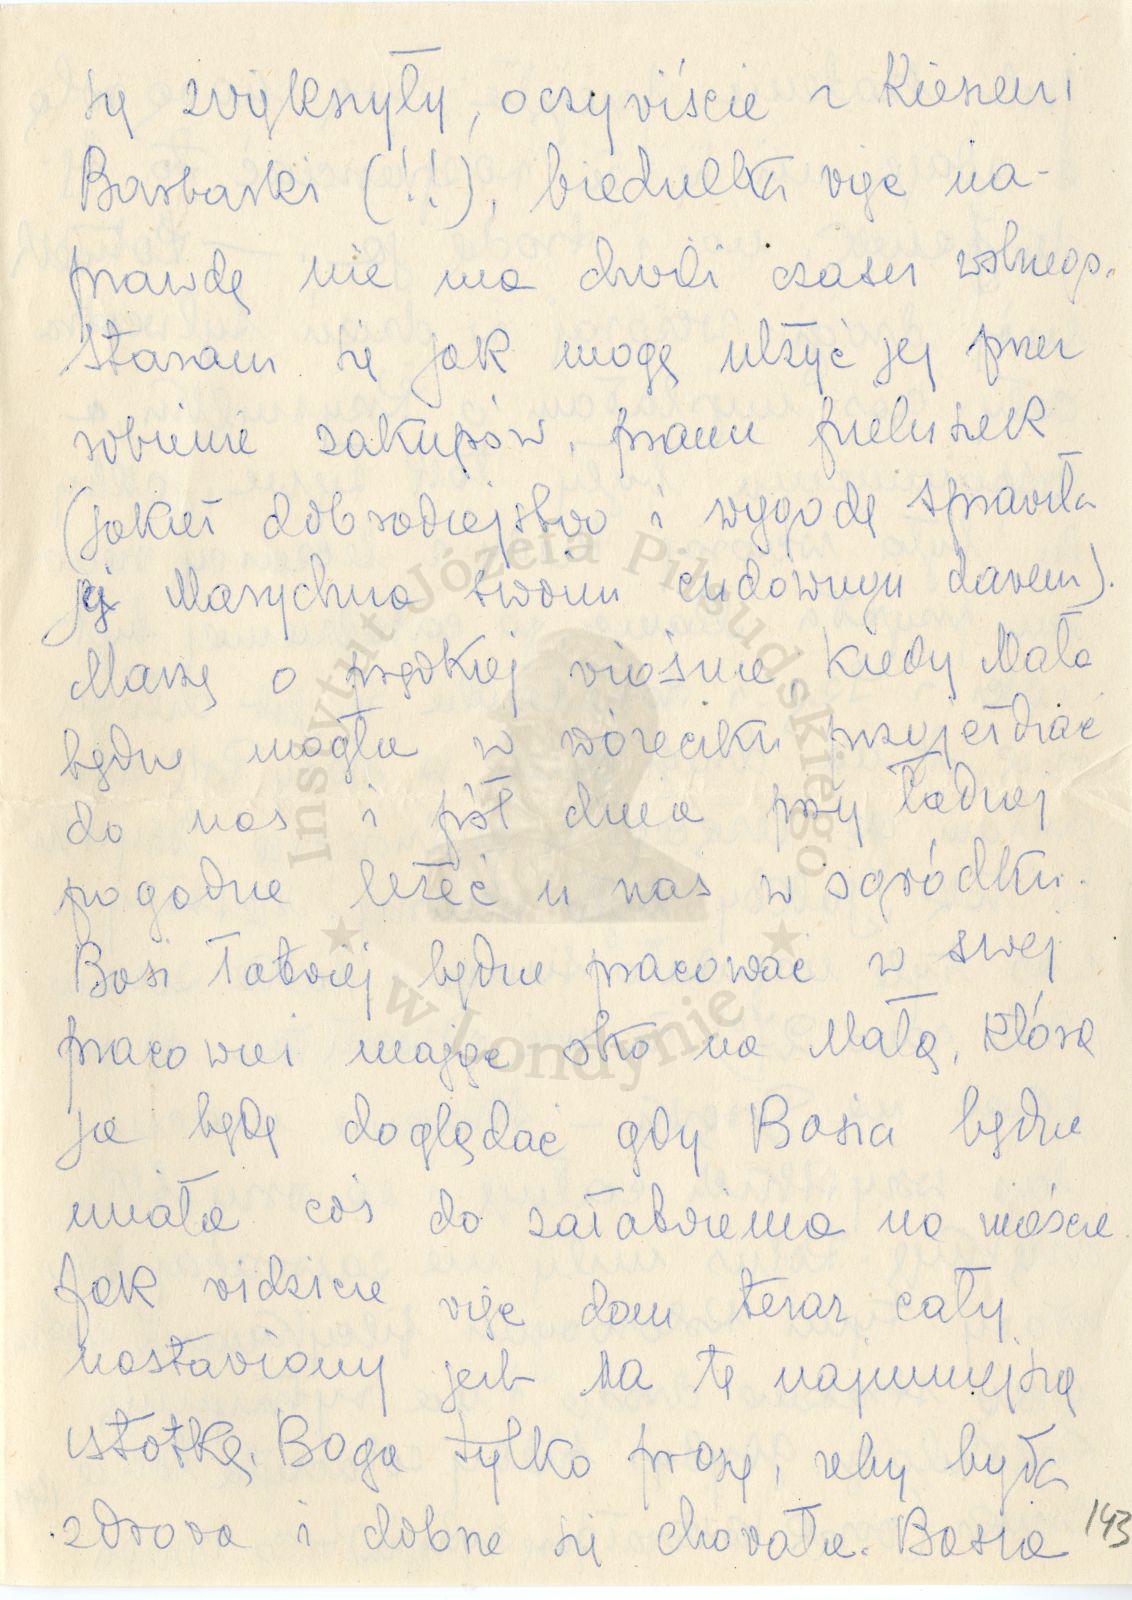 się zwiększyły, oczywiście z kieszeni
Barbaski (!!), biedulka więc na-
prawdę nie ma chwili czasu wolnego.
Staram się jak mogę ulżyć jej przez
robienie zakupów, pranie pieluszek
(jakież dobrodziejstwo i wygodę sprawiła
jej Marychna swoim cudownym darem).
Marzę o prędkiej wiośnie kiedy Mała
będzie mogła w wózeczku przyjeżdżać
do nas i pół dnia przy ładnej
pogodzie leżeć u nas w ogródku.
Basi łatwiej będzie pracować w swej
pracowni mając oko na Małą, którą
ja będę doglądać gdy Basia będzie
miała coś do załatwienia na mieście
Jak widzicie więc dom teraz cały
nastawiony jest na tę najmniejszą
istotkę. Boga tylko proszę, żeby była
zdrowa i dobrze się chowała. Basia
143
Instytut Józefa Piłsudskiego
w Londynie